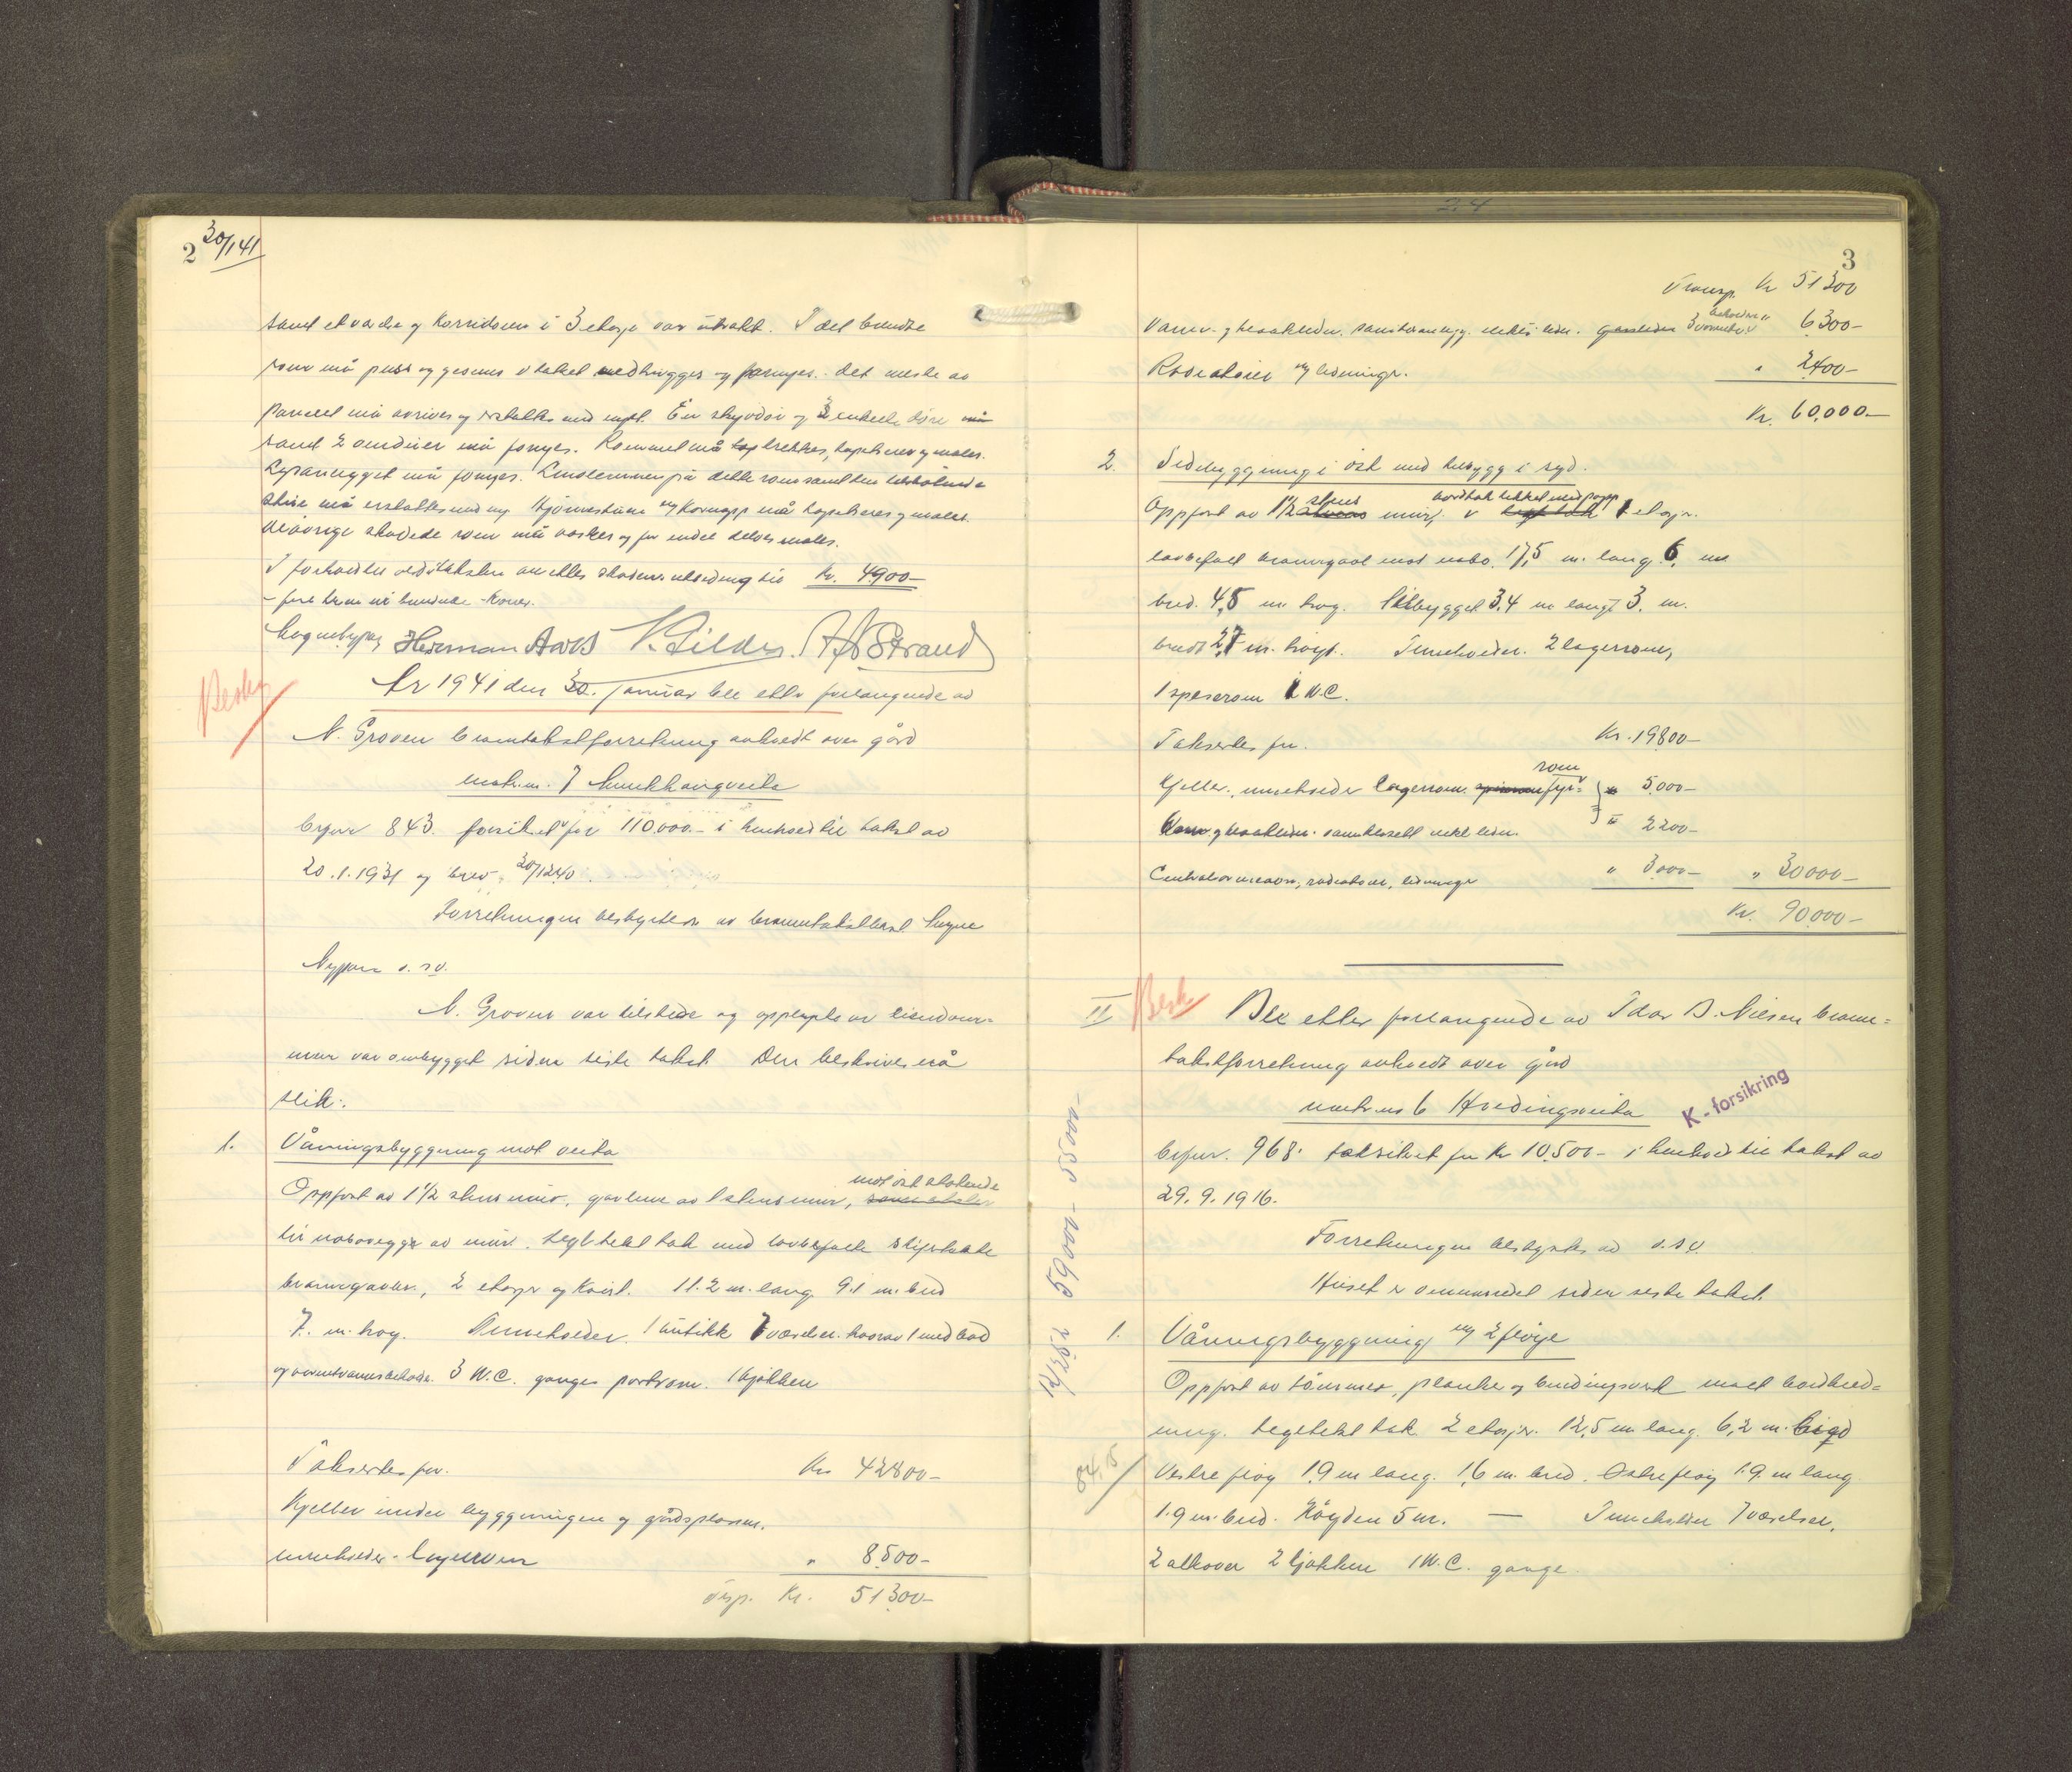 2 30/1 41
samt et værelse og korridoren i 3 etasje var utsatt. I det brendte
rom må puss og gesims i taket nedhugges og fornyes. Det meste av
panelet må avrives og erstattes med nytt. Én skyvdör og 2 enkelte döre
samt 2 vinduer må fornyes. Rommet må trekkes, tapetseres og males.
Lysanlegget må fornyes. Linoleummen på dette rom samt den
må erstattes med ny. Hjörnestuen og korrugp må tapetseres og males.
De övrige skadede rom må vaskes og for endel delvis males.
I forhold til verditaksten ansettes skadens utbedring til Kr. 4900-
- fire tusen ni hundrede - kroner.
Magne Nypan Herman Aars K. Gildes. A. Strand
Besk
År 1941 den 30. januar ble etter forlangende av
N. Groven branntakstforretning avholdt over gård
matr. nr. 7 Munkhaugveita
brfnr 843. forsikret for 110.000.- i henhold til takst av
20.1.1931 og brev 30/12 40.
Forretningen bestyrtes av branntakstbest. Magne
Nypan o.s.v.
N. Groven var tilstede og opplyste at eiendom-
men var ombygget siden siste takst. Den beskrives nå
slik:.
1. Våningsbyggning mot veita
mot öst stötende
Oppfört av 1 1/2 stens mur, gavlene av 1 stens mur,
til nabovegger av mur. tegltekt tak med
branngavler, 2 etasjer og kvist. 11.2 m. lang 9.1 m. bred
7. m. höy. Inneholder. 1 butikk 7 værelser. hvorav 1 med bad
og varmtvannsbeholder. 3 W.C. ganger portrom. 1 kjökken
Takseres for. Kr. 42800-
Kjeller under byggningen og gårdsplassen.
inneholder lagerrom " 8.500-
Trsp. Kr. 51300-
3
Transp. Kr 51300
Vann- og kloakkledn. sanitæranlegg. elektr. ledn. 6300-
Radiatorer og ledninger. " 2400-
Kr. 60.000.-
2. Sidebyggning i öst med tilbygg i syd.
stens bordtak tekket med papp
Oppfört av 1 1/2 mur, 1 etasje.
branngavl mot nabo. 17,5 m. lang 6, m
bred. 4,5 m höy. Tilbygget 3,4 m langt 3. m.
bredt 2,7 m. höyt. Inneholder. 2 lagerrom,
1 spiserom 1 W.C.
Takseres for. Kr. 19800-
rom
Kjeller, inneholder lagerrom fyr- 5.000-
Vann- og kloakkledn. sanitæranlegg elekt ledn. " 2200-
Centralvarmeovn, radiatorer, ledninger " 3.000- " 30.000-
Kr. 90.000-
II Besk
Ble etter forlangende av Idar B. Nilsen brann-
takstforretning avholdt over gård
matr. nr 6 Hvedingsveita
K-forsikring
brfnr. 968. forsikret for Kr 10.500- i henhold til takst av
29.9.1916.
Forretningen bestyrtes av o.s.v.
Huset er omminredet siden siste takst.
1. Våningsbyggning og 2 flöye
Oppfört av tömmer, planke og bindingsverk med bordkled-
ning. tegltekt tak. 2 etasjer. 12,5 m lang. 6,2 m. bred
Vestre flöy 1.9 m lang. 1.6 m. bred. Östre flöy 1.9 m lang
1.9 m. bred. Höyden 5 m. — Inneholder 7 værelser,
2 alkover 2 kjökken 1 W.C. gange.
12/2 52 59000- 55000-
84,15